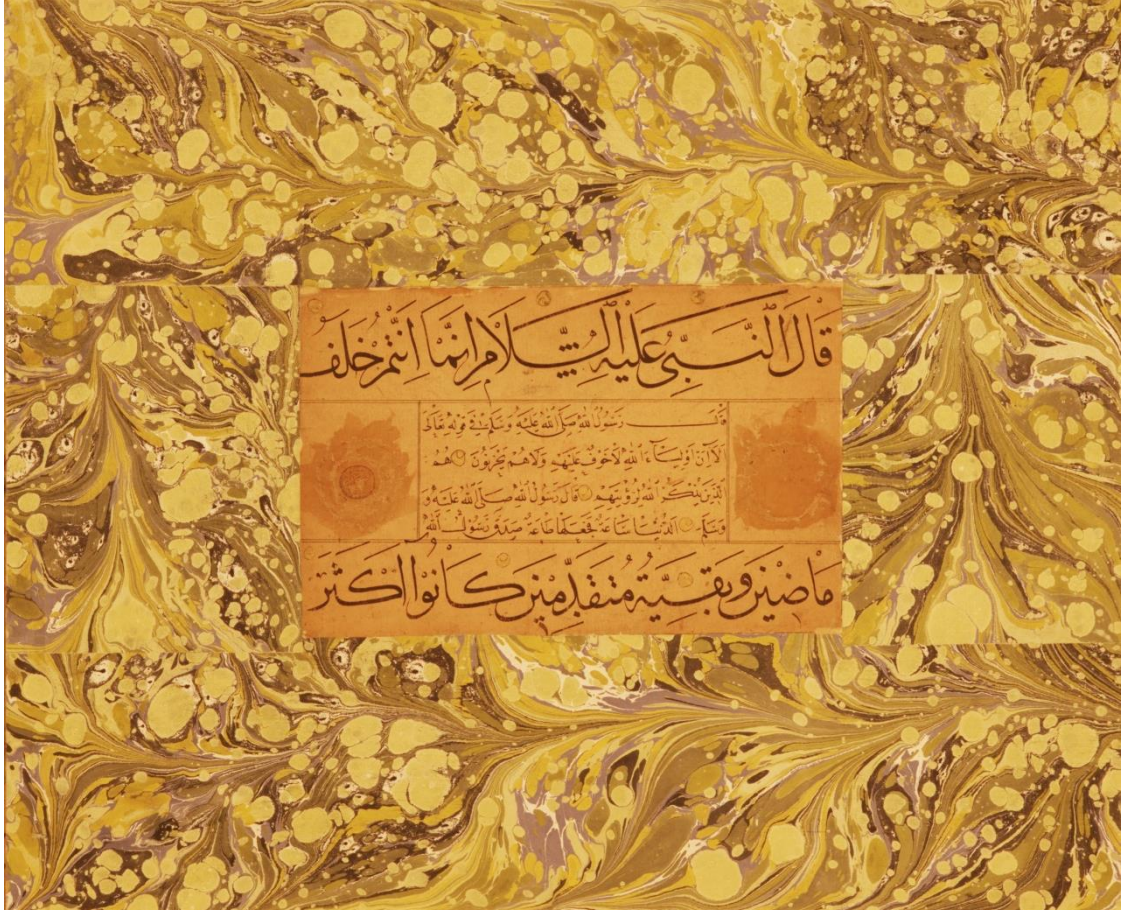 قَالَ النَّبِىُّ عَلَيْهِ السَّلَامُ اِنَّمَا اَنْتُمْ خَلَفُ
قال رسول الله صلى الله عليه وسلم فى قوله تعالى
الا ان اولياء الله لا خوف عليهم ولا هم يحزنون هم
الذين يذكر الله برؤيتهم قال رسول الله صلى الله عليه و
وسلم الدنيا ساعة فجعلها طاعة صدق رسول الله
مَاضِينَ وَبَقِيَّةُ مُتَقَدِّمِينَ كَانُوا اَكْثَرَ